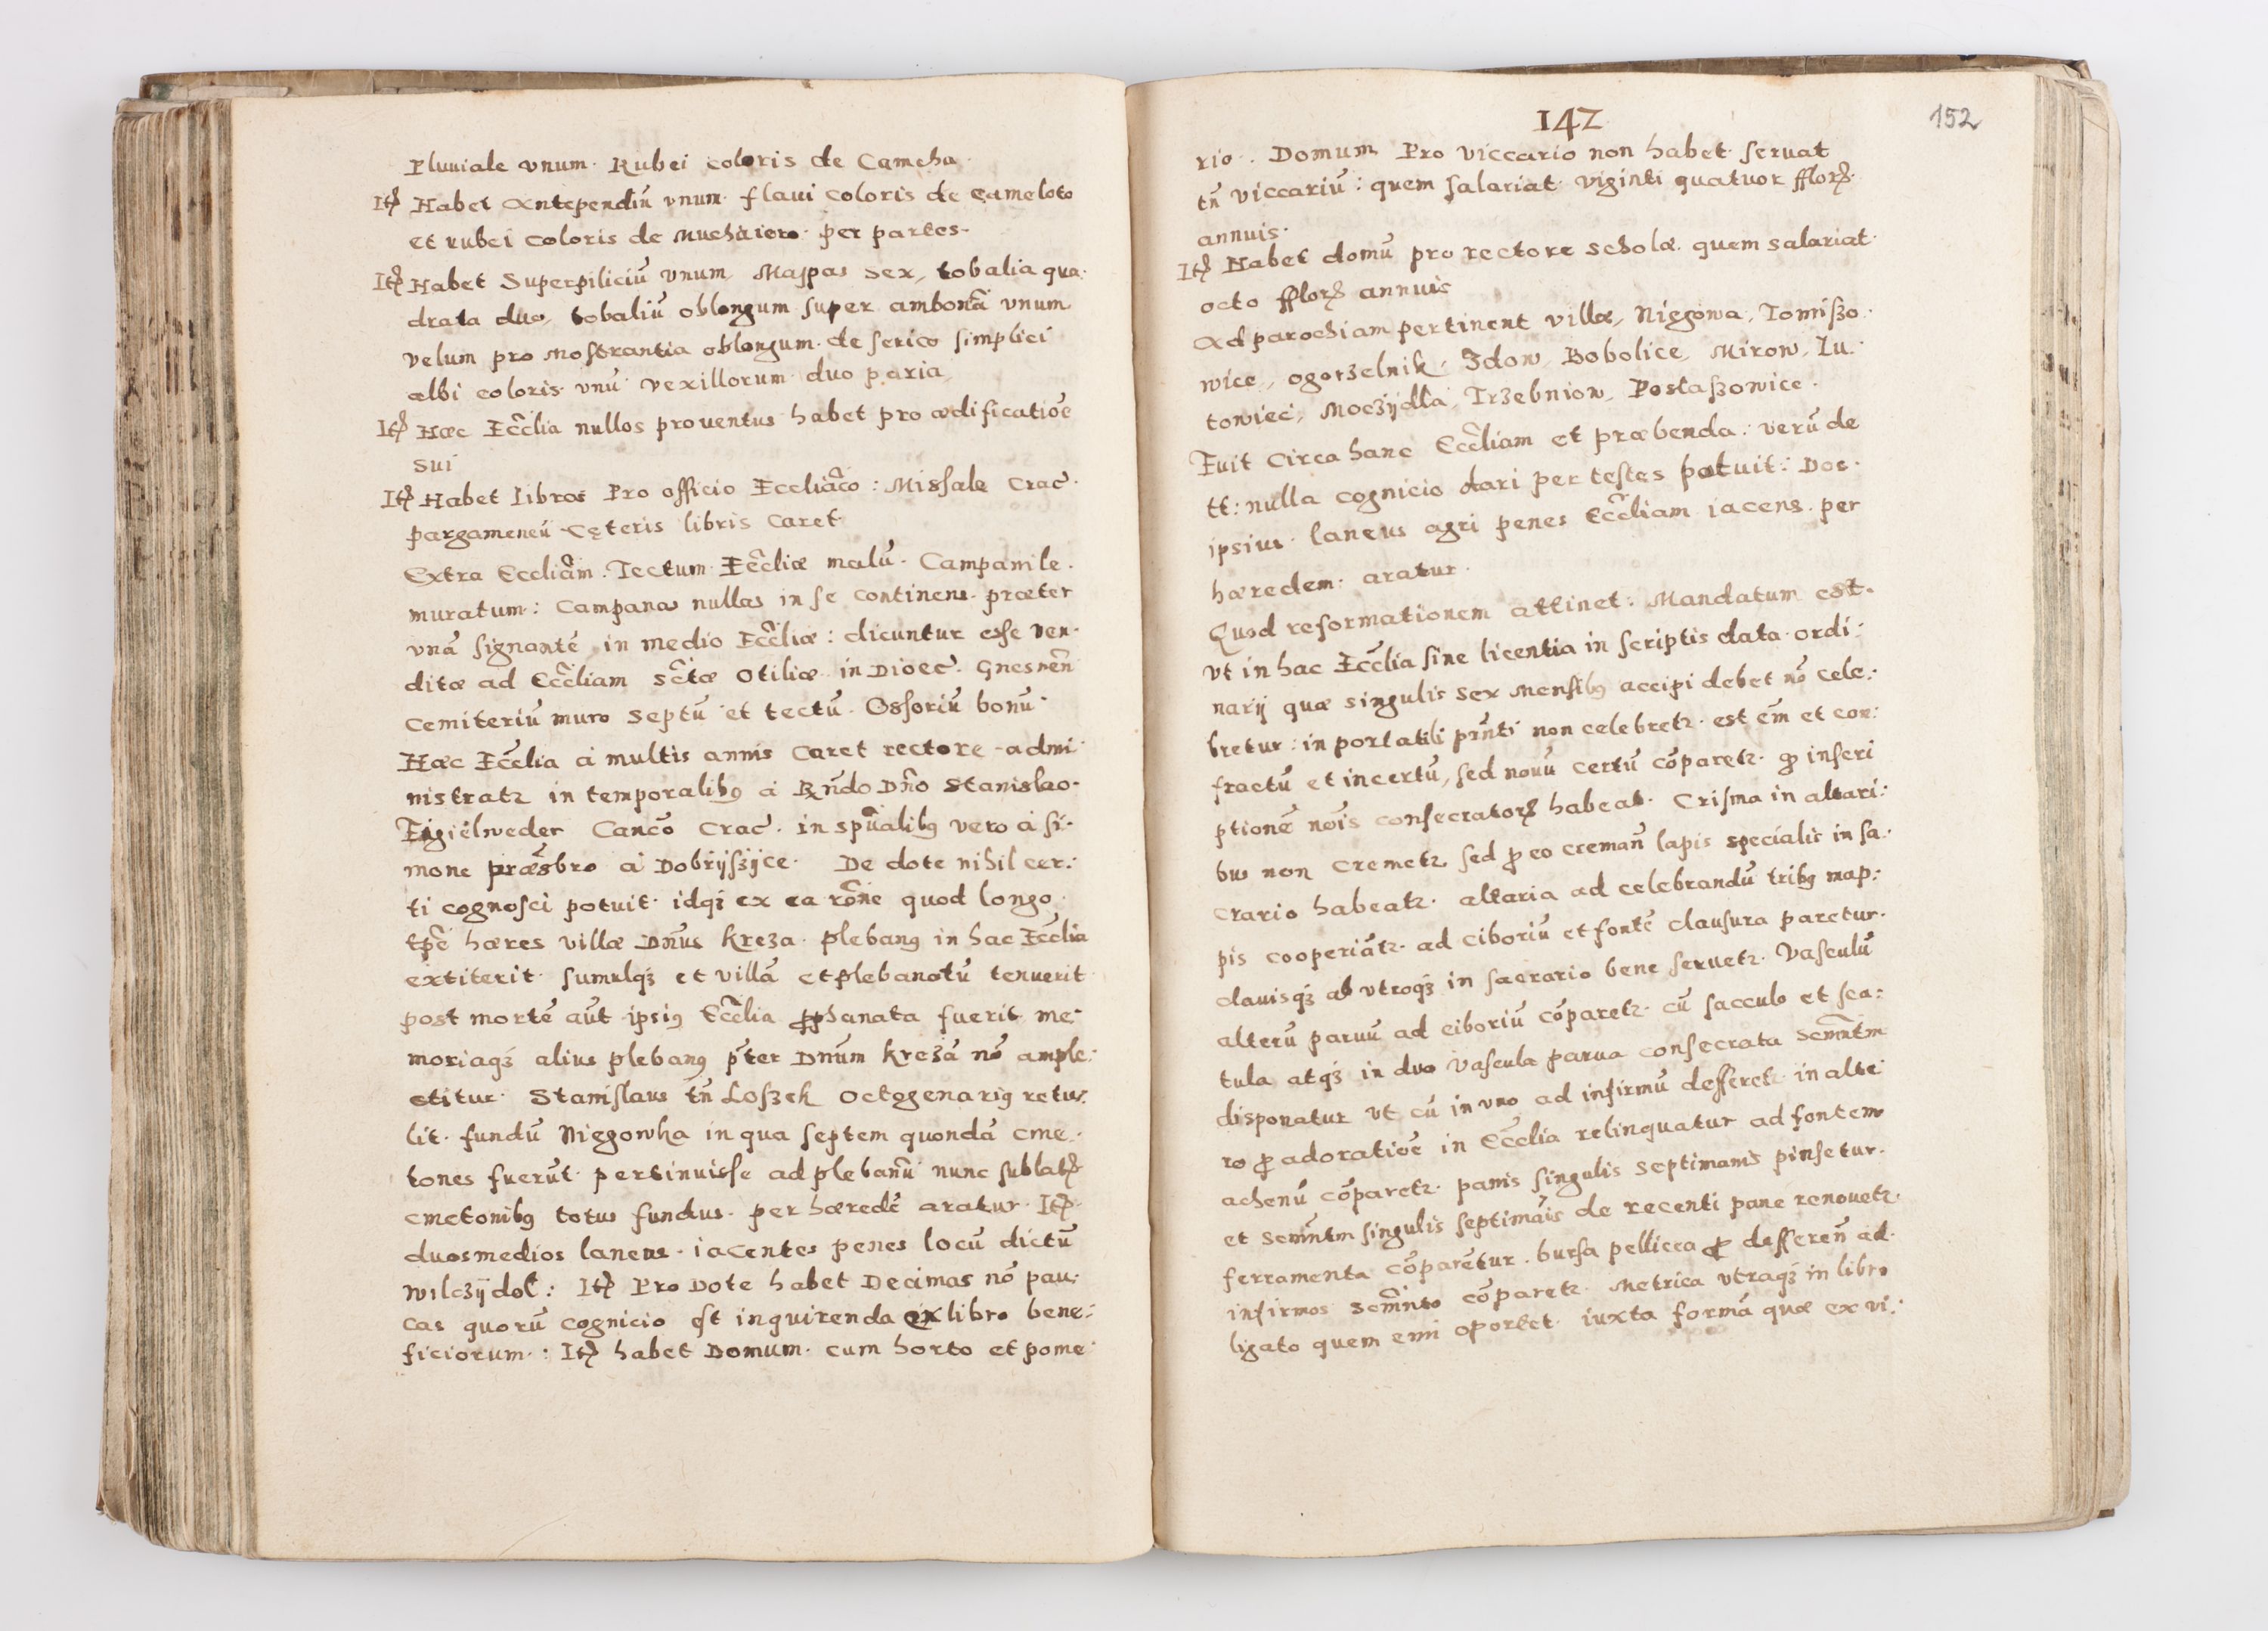 Pluuiale vnum. Rubei coloris de Cameha.
Itẽ Habet Antependiũ vnum. flaui coloris de Cameloto
et rubei coloris de Muchaiero. per partes.
Itẽ Habet Superpiliciũ vnum, Mappas sex, tobalia qua.
drata duo, tobaliũ oblongum super ambonã vnum
velum pro Mostrantia oblongum. de serico simplici
albi coloris. vnũ vexillorum duo paria,
Itẽ Hæc Eccl̃ia nullos prouentus habet pro ædificatioẽ
sui
Itẽ Habet libros Pro officio Eccl̃iãco: Missale Crac̃.
pargameneũ Cęteris libris caret.
Extra Eccliãm. Tectum. Eccl̃iæ malũ. Campanile.
muratum: Campanas nullas in se continens. præter
vnã signantẽ, in medio Eccl̃iæ: dicuntur esse ven.
ditæ ad Eccl̃iam Sc̃tæ Otiliæ in Dioec̃. Gnesneñ
Cemiteriũ muro septũ et tectũ. Ossoriũ bonũ.
Hæc Eccl̃ia à multis annis caret rectore admi
nistratꝛ in temporalibꝰ à Rñdo Dño Stanislao.
Figielweder Canco̅ Crac̃. in spũalibꝰ vero à Si.
mone præsbro à Dobrijszijce. De dote nihil cer:
ti cognosci potuit. idqꝫ ex ea rõne quod longo.
tpẽ hæres villæ Dñus Kreza. plebanꝰ in hac Eccl̃ia
extiterit. sumulqꝫ et villã et plebanatũ tenuerit.
post mortẽ aũt ipsiꝰ Eccl̃ia ꝓphanata fuerit me:
moriaqꝫ alius plebanꝰ p̃ter Dñum Krezã nõample:
ctitur. Stanislaus tñ Loszek octogenariꝰ retu:
lit. fundũ Niegowka in qua septem quondã cme.
tones fuerũt. pertinuisse ad plebanũ nunc sublatꝭ
cmetonibꝰ totus fundus. per hæredẽ aratur. Itẽ
duos medios laneus. iacentes penes locũ dictũ
Wilczijdoł: Itẽ Pro Dote habet Decimas nõ pau:
cas quorũ cognicio est inquirenda ex libro bene:
ficiorum.: Itẽ habet Domum. cum horto et pome
147
152
rio.. Domum Pro viccario non habet. seruat
tñ viccariũ: quem salariat. viginti quatuor fflorꝭ.
annuis.
Itẽ Habet domũ pro rectore scholæ. quem salariat.
octo fflorꝭ annuis
Ad parochiam pertinent villæ, Niegowa, Tomiszo.
wice, ogorzelnik, Zdow, Bobolice, Mirow, Lu.
towiec, Moczijdła, Trzebniow, Postaszowice.
Fuit circa hanc Eccl̃iam et præbenda. verũ de
tt: nulla cognicio dari per testes potuit: Dos.
ipsius. laneus agri penes Eccl̃iam iacens. per
hæredem. aratur.
Quod reformationem attinet: Mandatum est.
Vt in hac Eccl̃ia sine licentia in scriptis data. ordi:
narij quæ singulis sex mensibꝰ accipi debet nõ cele:
bretur: in portatili prñti non celebretꝛ. est eñ et con:
fractũ et incertũ, sed nouũ certũ cõparetꝛ. qͦ inscri
ptionẽ nõis consecratorꝭ habeat. Crisma in altari:
bus non cremetꝛ sed ꝓ eo cremañ lapis specialis in sa.
crario habeatꝛ. altaria ad celebrandũ tribꝰ map:
pis cooperiãtꝛ. ad ciboriũ et fontẽ clausura paretur.
clauisqꝫ ab vtroqꝫ in sacrario bene seruetꝛ. Vasculũ
alterũ paruũ ad ciboriũ cõparetꝛ. cũ sacculo et sca:
tula atqꝫ in duo vascula parua consecrata Scm̃ntm
disponatur vt cũ in vno ad infirmũ defferetꝛ in alte
ro ꝓ adoratioẽ in Eccl̃ia relinquatur ad fontem
achenũ cõparetꝛ. panis singulis septimanis pinsetur.
et Scm̃ntm singulis septimãis de recenti pane renouetꝛ.
ferramenta cõparẽtur. bursa pellicea ꝓ defferẽn ad.
infirmos Scm̃nto cõparetꝛ. Metrica vtraqꝫ in libro
ligato quem emi oportet. iuxta formã quæ ex vi: